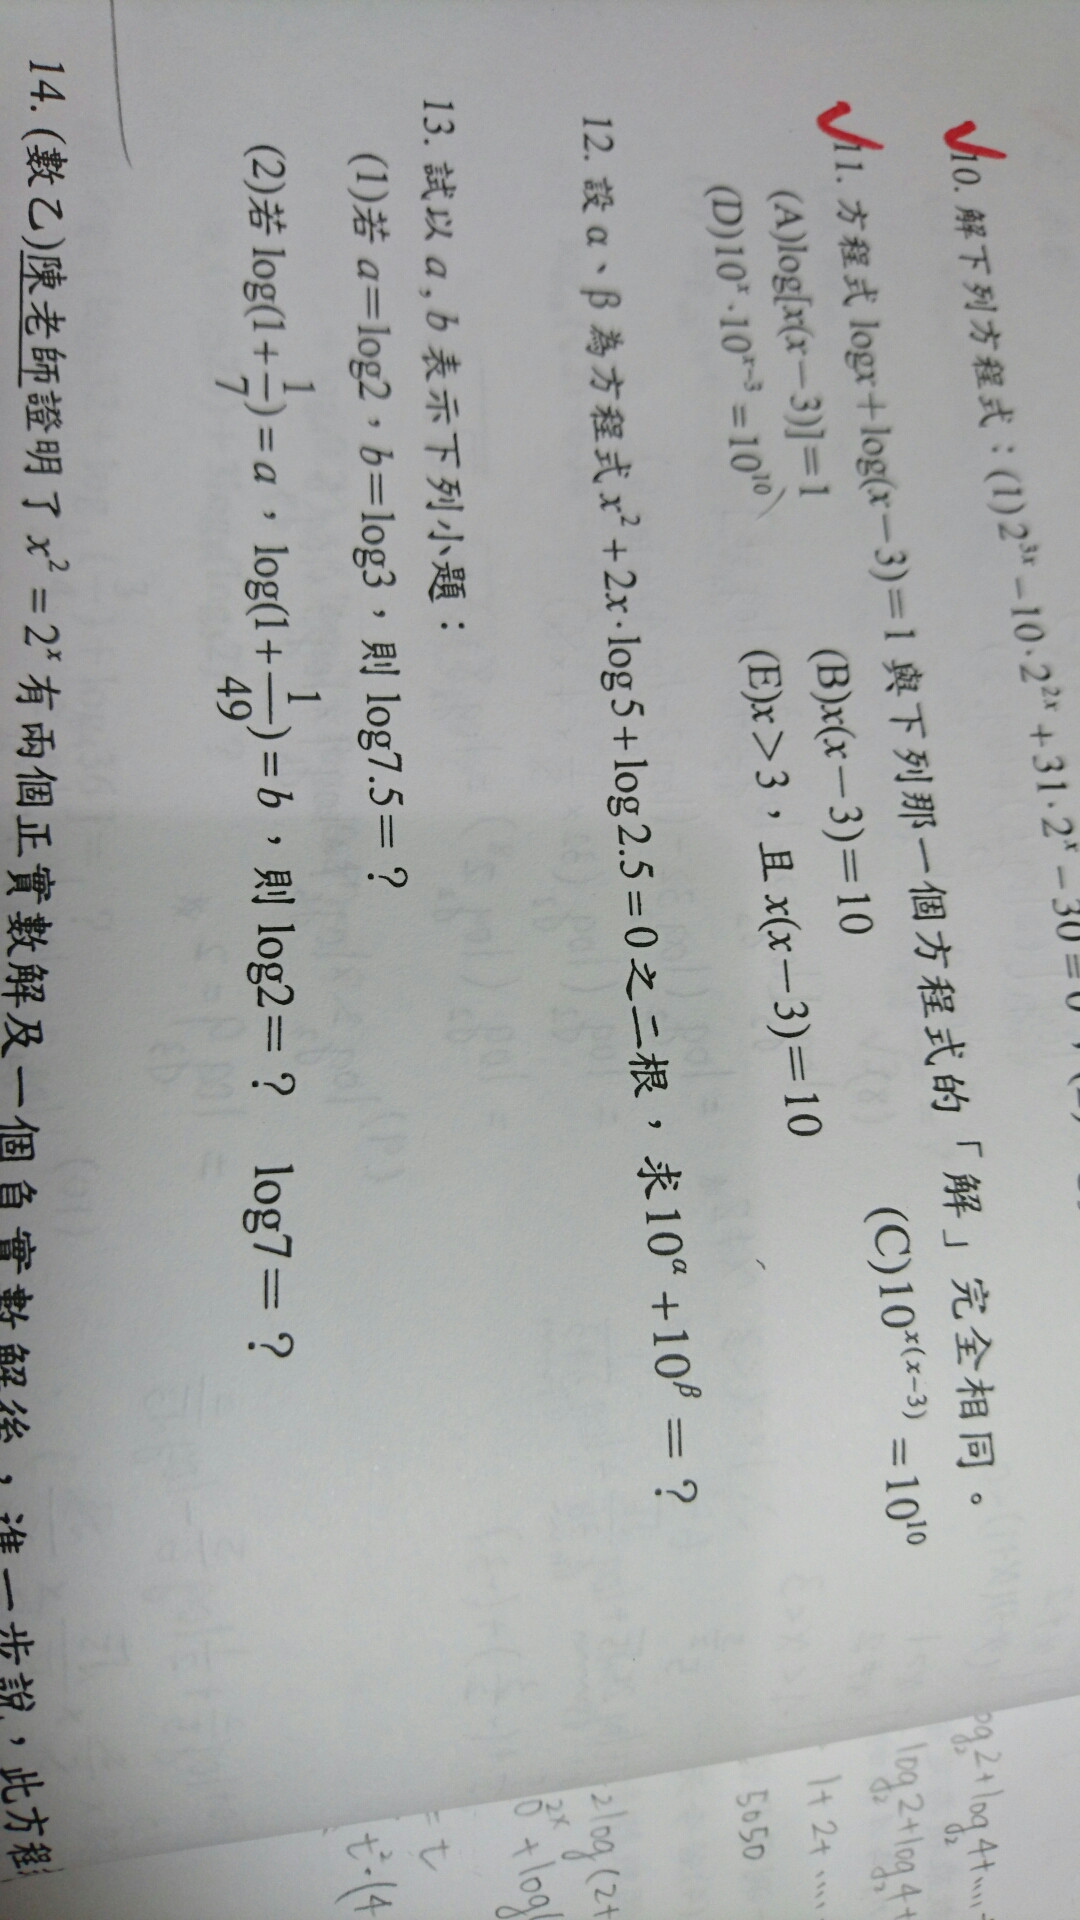 10. 解下列方程式：(1)2^{3x}－10·2^{2x}＋31·2^x－30＝0，
11. 方程式 logx＋log(x－3)＝1 與下列那一個方程式的「解」完全相同。
(A)log[x(x－3)]＝1 (B)x(x－3)＝10 (C)10^{x(x－3)}＝10^{10}
(D)10^x·10^{x－3}＝10^{10} (E)x＞3，且 x(x－3)＝10
12. 設 α、β 為方程式 x²＋2x·log5＋log2.5＝0 之二根，求 10^α＋10^β＝？
13. 試以 a, b 表示下列小題：
(1)若 a＝log2，b＝log3，則 log7.5＝？
(2)若 log(1＋1/7)＝a，log(1＋1/49)＝b，則 log2＝？ log7＝？
14. (數乙)陳老師證明了 x²＝2^x 有兩個正實數解及一個負實數解後，進一步說，此方程
log2+log4+
log2+log4+
1+2+....
5050
2log(2+
+log(
=t
t²·(4